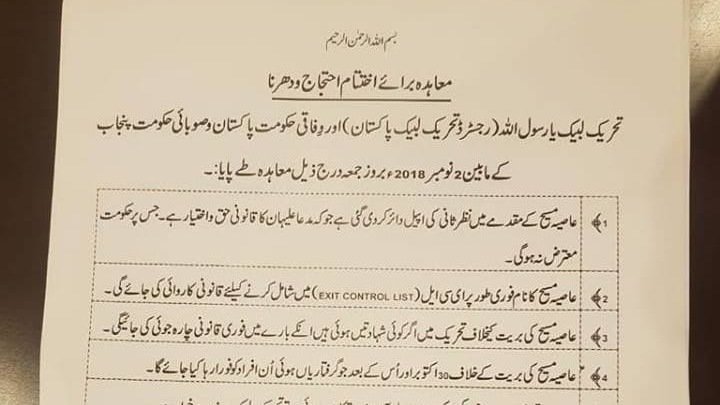 بسم اللہ الرحمٰن الرحیم
معاہدہ برائے اختتام احتجاج و دھرنا
تحریک لبیک یا رسول اللہ (رجسٹرڈ تحریک لبیک پاکستان) اور وفاقی حکومت پاکستان و صوبائی حکومت پنجاب
کے مابین 2 نومبر 2018ء بروز جمعہ درج ذیل معاہدہ طے پایا:۔
1 عاصیہ مسیح کے مقدمے میں نظر ثانی کی اپیل دائر کر دی گئی ہے جو کہ مدعا علیہان کا قانونی حق و اختیار ہے۔ جس پر حکومت
معترض نہ ہوگی۔
2 عاصیہ مسیح کا نام فوری طور پر ای سی ایل (EXIT CONTROL LIST) میں شامل کرنے کیلئے قانونی کاروائی کی جائے گی۔
3 عاصیہ مسیح کی بریت کیخلاف تحریک میں اگر کوئی شہادتیں ہوئی ہیں انکے بارے میں فوری قانونی چارہ جوئی کی جائیگی۔
4 عاصیہ مسیح کی بریت کے خلاف 30 اکتوبر اور اُس کے بعد جو گرفتاریاں ہوئی اُن افراد کو فوراً رہا کیا جائے گا۔